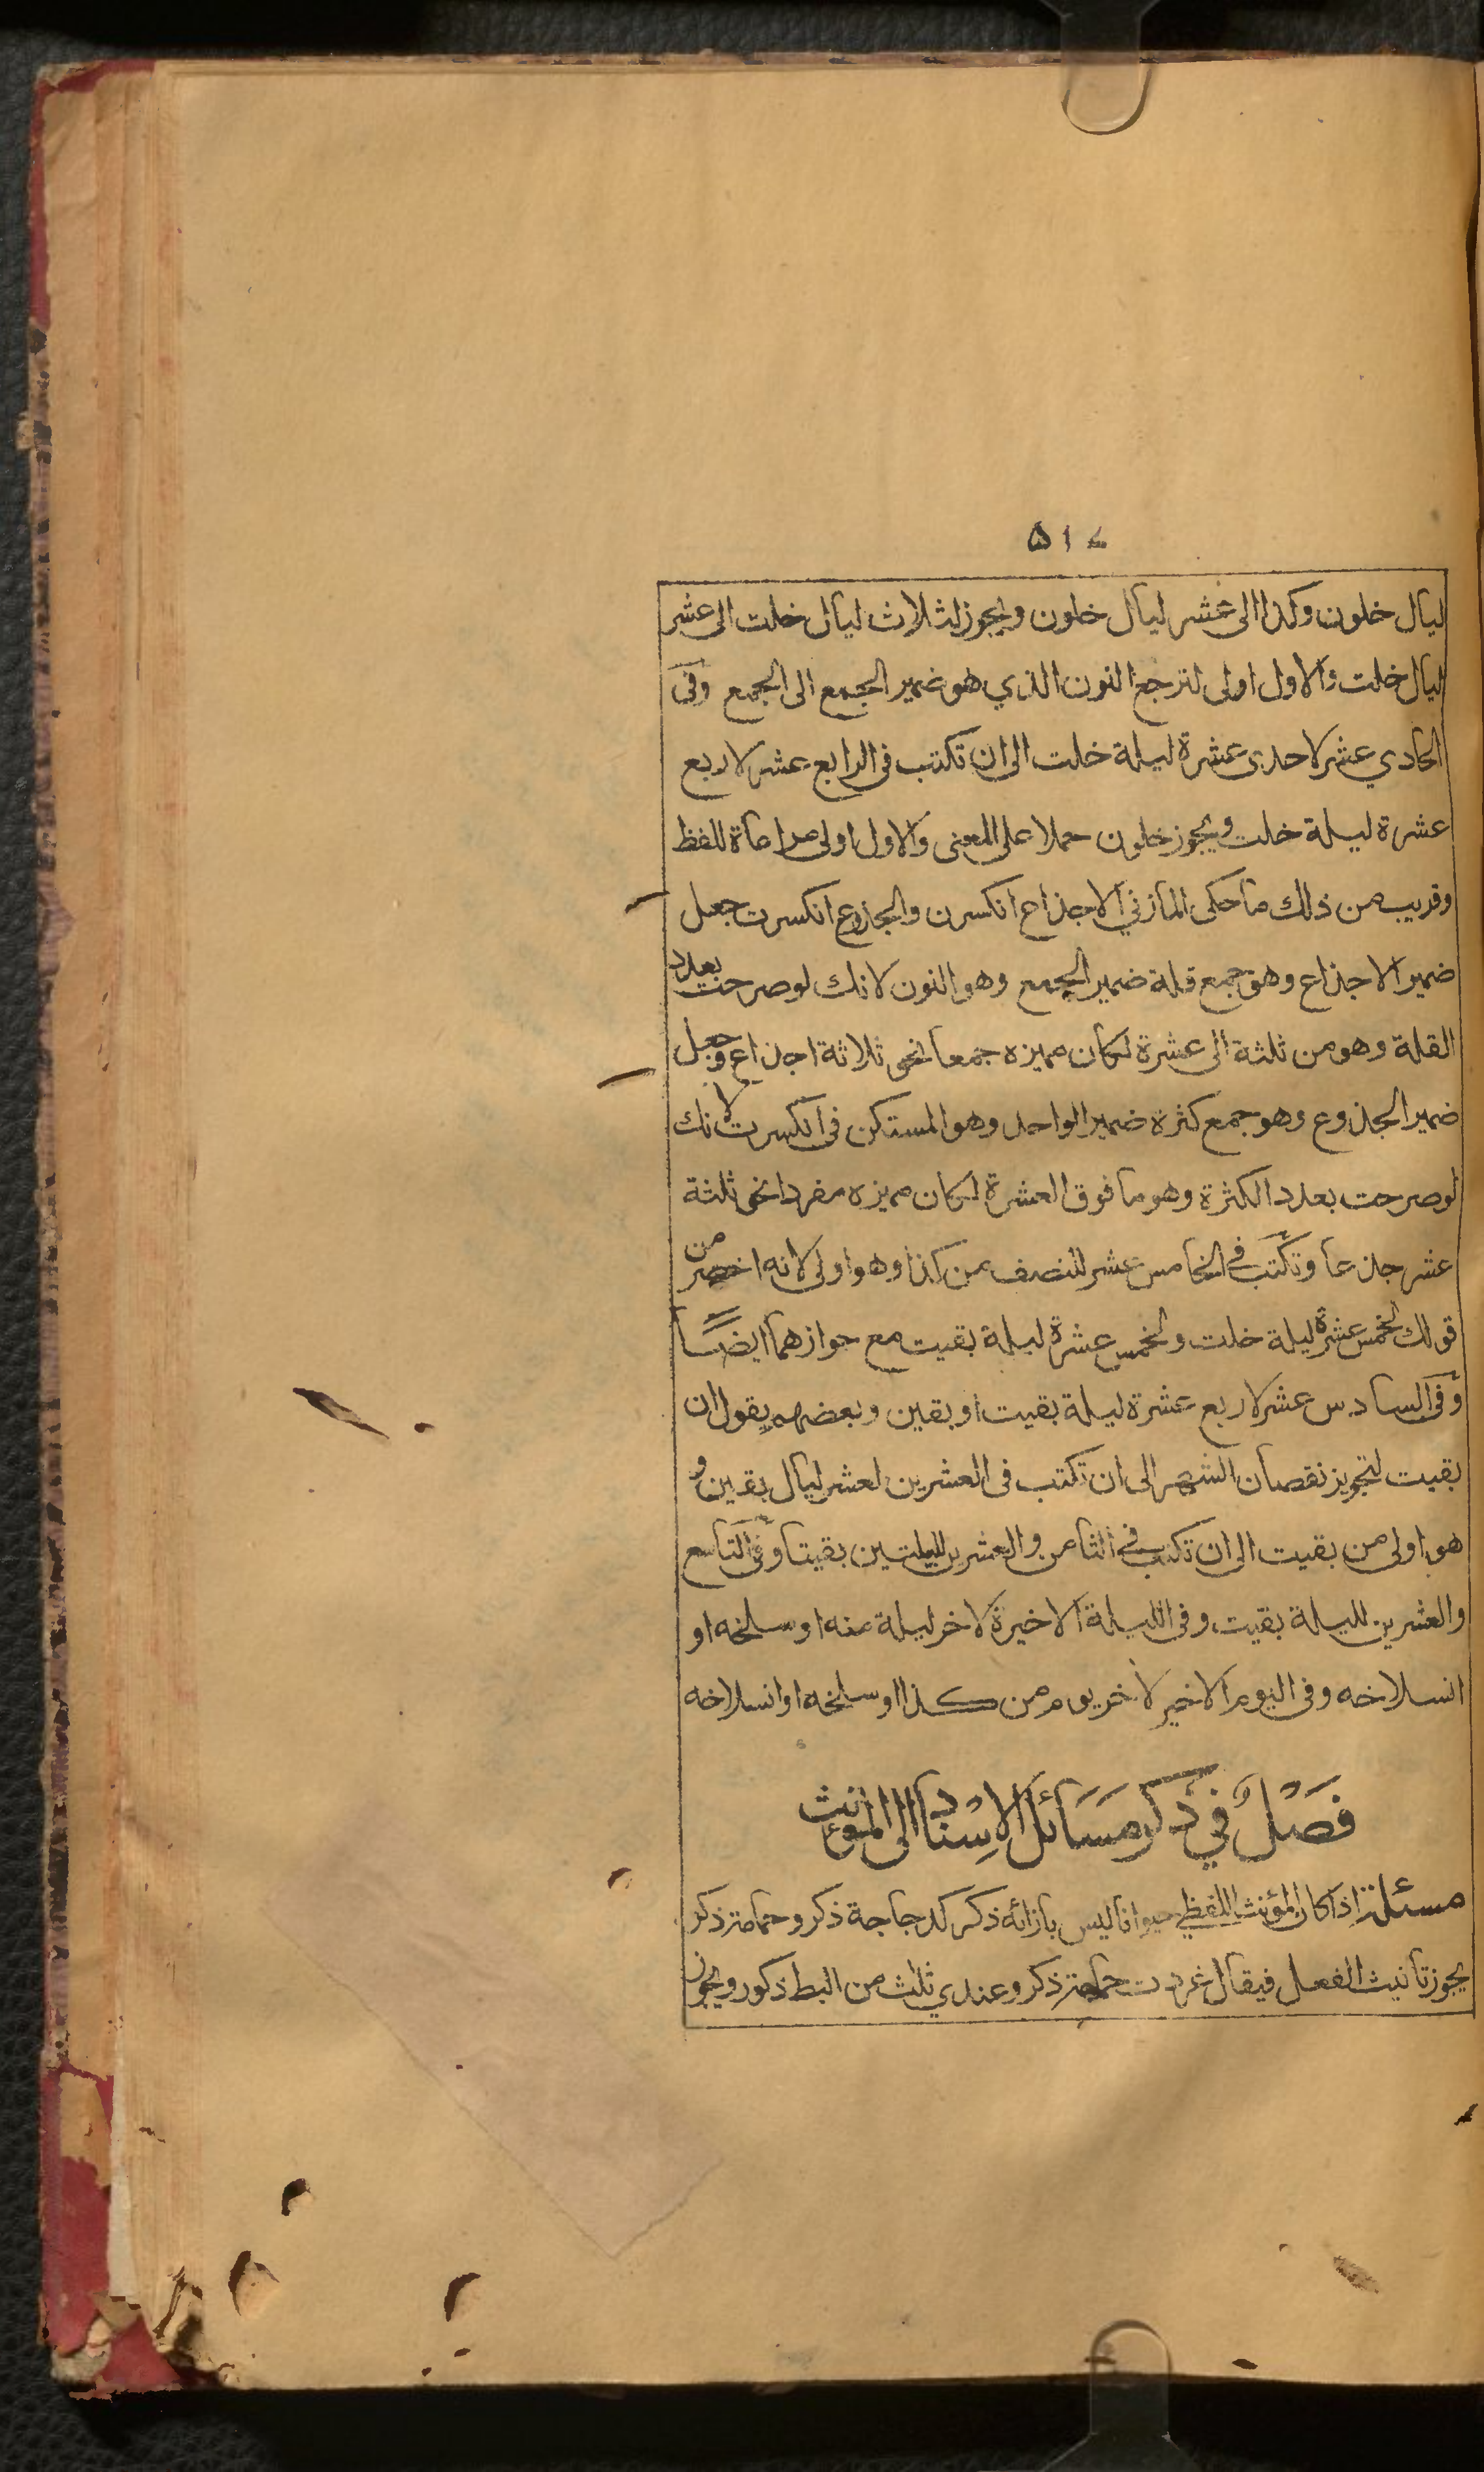 ۵۱۷
ليال خلون وكذا الى عشر ليال خلون ويجوز لثلاث ليال خلت الى عشر
ليال خلت والاول اولى لترجع النون الذي هو ضمير الجمع الى الجمع وفى
الحادي عشر لاحدى عشرة ليلة خلت الى ان تكتب فى الرابع عشر لاربع
عشرة ليلة خلت ويجوز خلون حملا على المعنى والاول اولى مراعاة للفظ
وقريب من ذلك ما حكى المازني الاجذاع انكسرن والجذوع انكسرت جعل
ضمير الاجذاع وهو جمع قلة ضمير الجمع وهو النون لانك لو صرحت بعدد
القلة وهو من ثلثة الى عشرة لكان مميزه جمعا نحو ثلاثة اجذاع وجعل
ضمير الجذوع وهو جمع كثرة ضمير الواحد وهو المستكن فى انكسرت لانك
لو صرحت بعدد الكثرة وهو ما فوق العشرة لكان مميزه مفردا نحو ثلثة
عشر جذعا وتكتب في الخامس عشر للنصف من كذا وهو اولى لانه اخصر من
قولك لخمس عشرة ليلة خلت ولخمس عشرة ليلة بقيت مع جوازهما ايضا
وفى السادس عشر لاربع عشرة ليلة بقيت او بقين وبعضهم يقول ان
بقيت لتجويز نقصان الشهر الى ان تكتب فى العشرين لعشر ليال بقين و
هو اولى من بقيت الى ان تكتب في الثامن والعشرين لليلتين بقيتا وفي التاسع
والعشرين لليلة بقيت وفى الليلة الاخيرة لاخر ليلة منه او سلخه او
انسلاخه وفى اليوم الاخير لاخر يوم من كذا او سلخه او انسلاخه
فَصْلٌ في ذكر مَسَائل الاِسْناد الى المؤنث
مسئلة اذا كان المؤنث اللفظي حيوانا ليس بازائه ذكر كدجاجة ذكر وحمامة ذكر
يجوز تانيث الفعل فيقال غردت حمامة ذكر وعندي ثلث من البط ذكور ويجوز